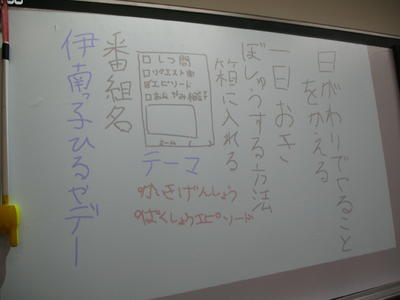 日がわりでやること
をかえる
一日おき
ぼしゅうする方法
箱に入れる
□しつ問
□リクエスト曲
□エピソード
□おなやみ相談
テーマ
かいきげんしょう
ばくしょうエピソード
番組名
伊南っ子ひるやデー